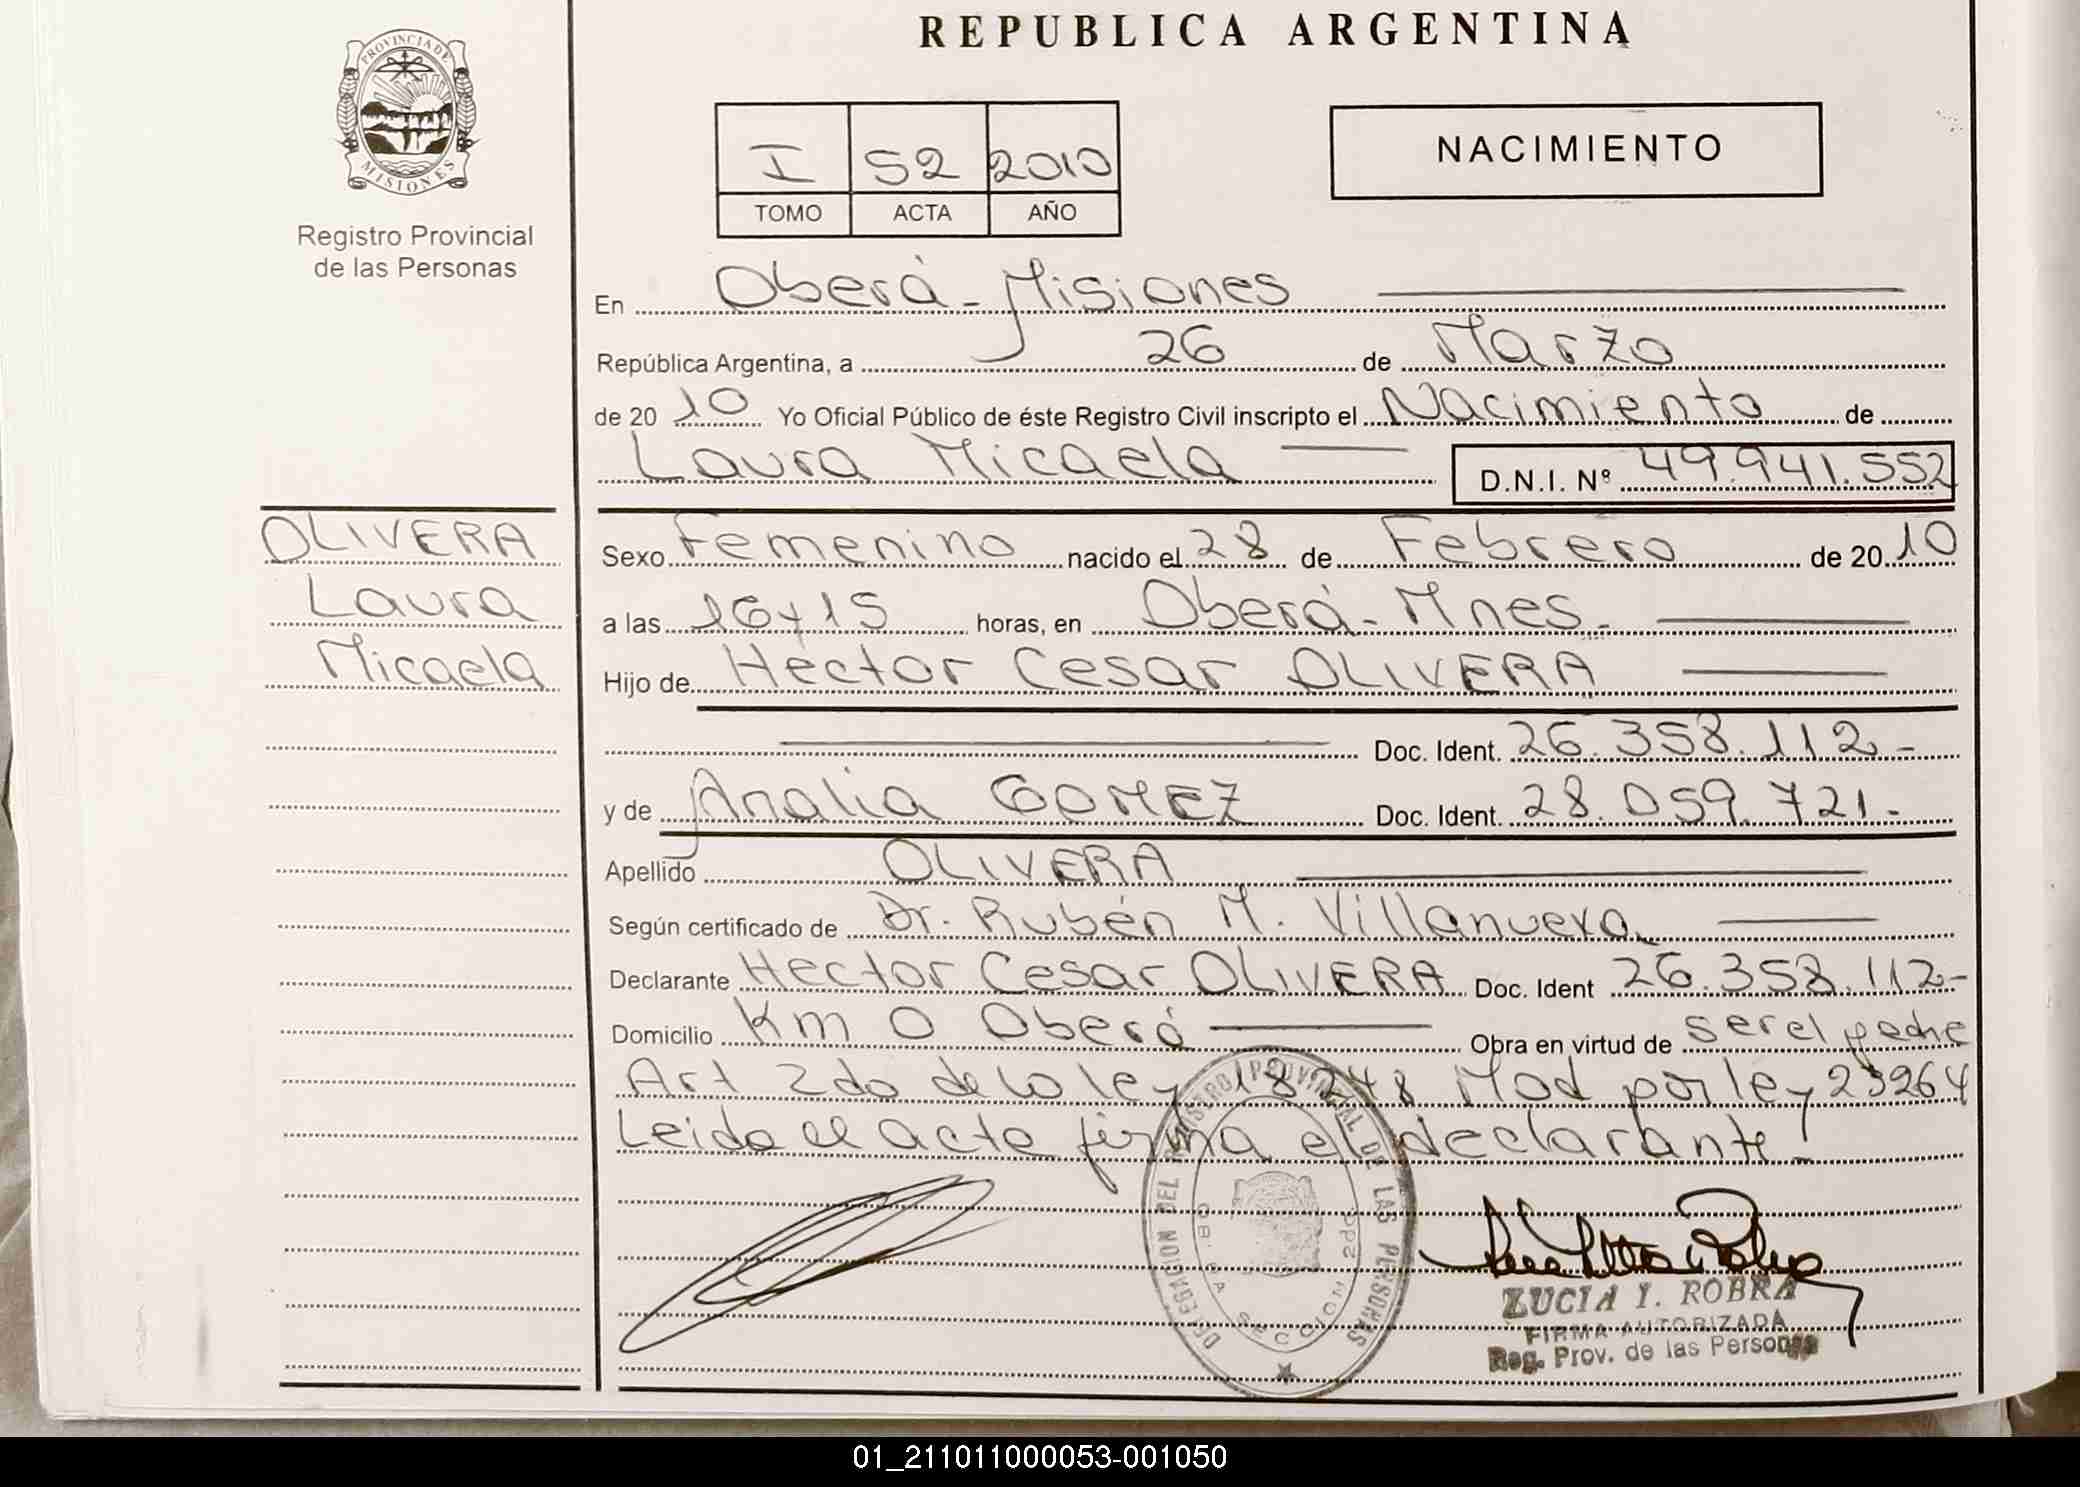 REPUBLICA ARGENTINA
PROVINCIA DE
MISIONES
Registro Provincial
de las Personas
I 52 2010
TOMO ACTA AÑO
NACIMIENTO
En Oberá - Misiones
República Argentina, a 26 de Marzo
de 20 10 Yo Oficial Público de éste Registro Civil inscripto el Nacimiento de
Laura Micaela D.N.I. Nº 49.941.552
OLIVERA
Laura
Micaela
Sexo Femenino nacido el 28 de Febrero de 20 10
a las 16 y 15 horas, en Oberá - Mnes.
Hijo de Hector Cesar OLIVERA
Doc. Ident. 26.358.112-
y de Analia GOMEZ Doc. Ident. 28.059.721-
Apellido OLIVERA
Según certificado de Dr. Rubén M. Villanueva
Declarante Hector Cesar OLIVERA Doc. Ident 26.358.112-
Domicilio Km 0 Oberá Obra en virtud de ser el padre
Art 2do de la ley 18248 Mod por ley 23264
Leida el acta firma el declarante -
DELEGACION DEL REGISTRO PROVINCIAL DE LAS PERSONAS
SECCION 2da
LUCIA I. ROBRA
FIRMA AUTORIZADA
Reg. Prov. de las Personas
01_211011000053-001050